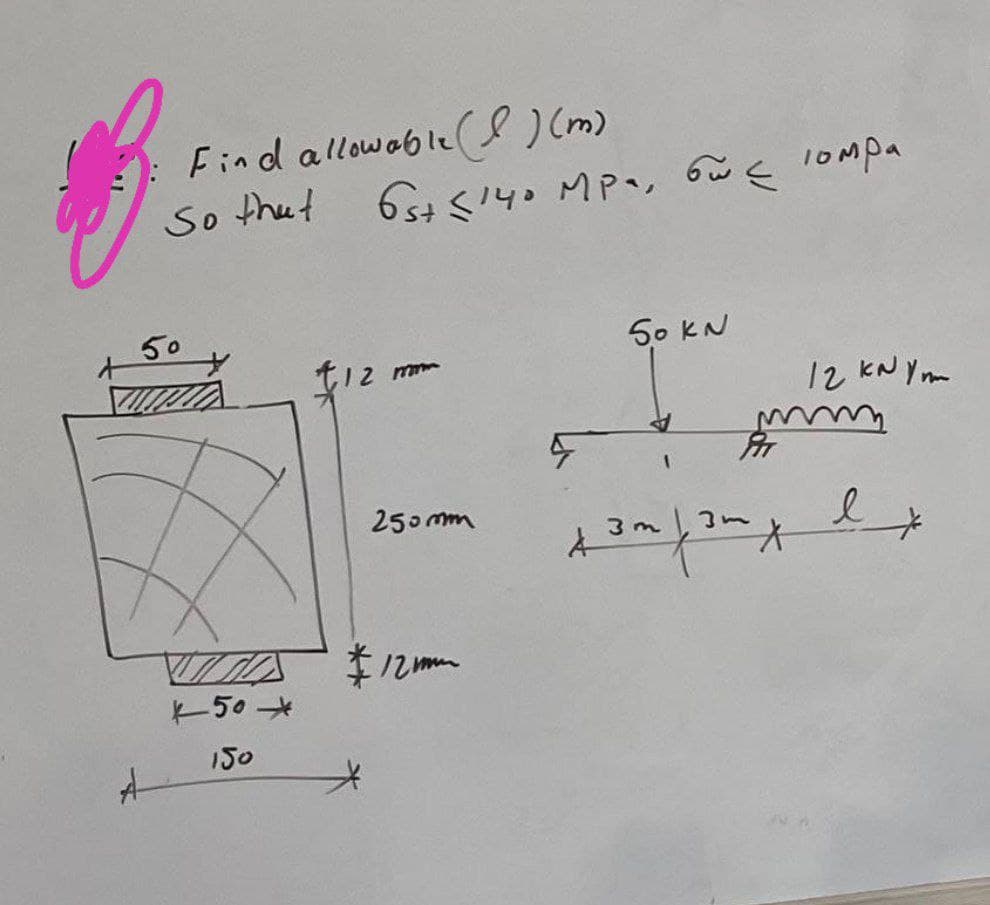 : Find allowable (l) (m)
So that 6st ≤ 140 MPa, 6w ≤ 10MPa
50
12 mm
250mm
12mm
50
150
50 KN
12 KN/m
3m 3m l